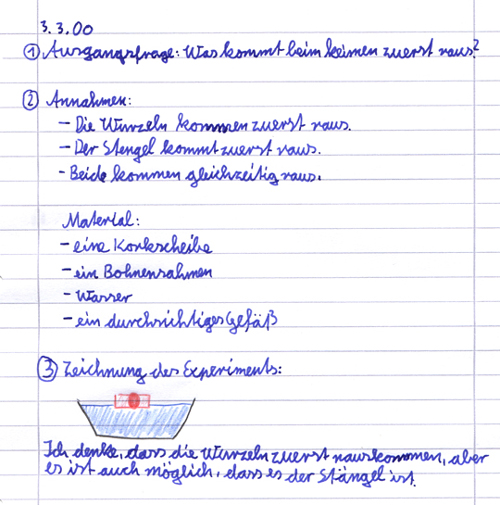 3.3.00
① Ausgangsfrage: Was kommt beim keimen zuerst raus?
② Annahmen:
– Die Wurzeln kommen zuerst raus.
– Der Stengel kommt zuerst raus.
- Beide kommen gleichzeitig raus.
Material:
– eine Korkscheibe
– ein Bohnensahmen
- Wasser
– ein durchsichtiges Gefäß
③ Zeichnung des Experiments:
Ich denke, dass die Wurzeln zuerst rauskommen, aber
es ist auch möglich, dass es der Stängel ist.